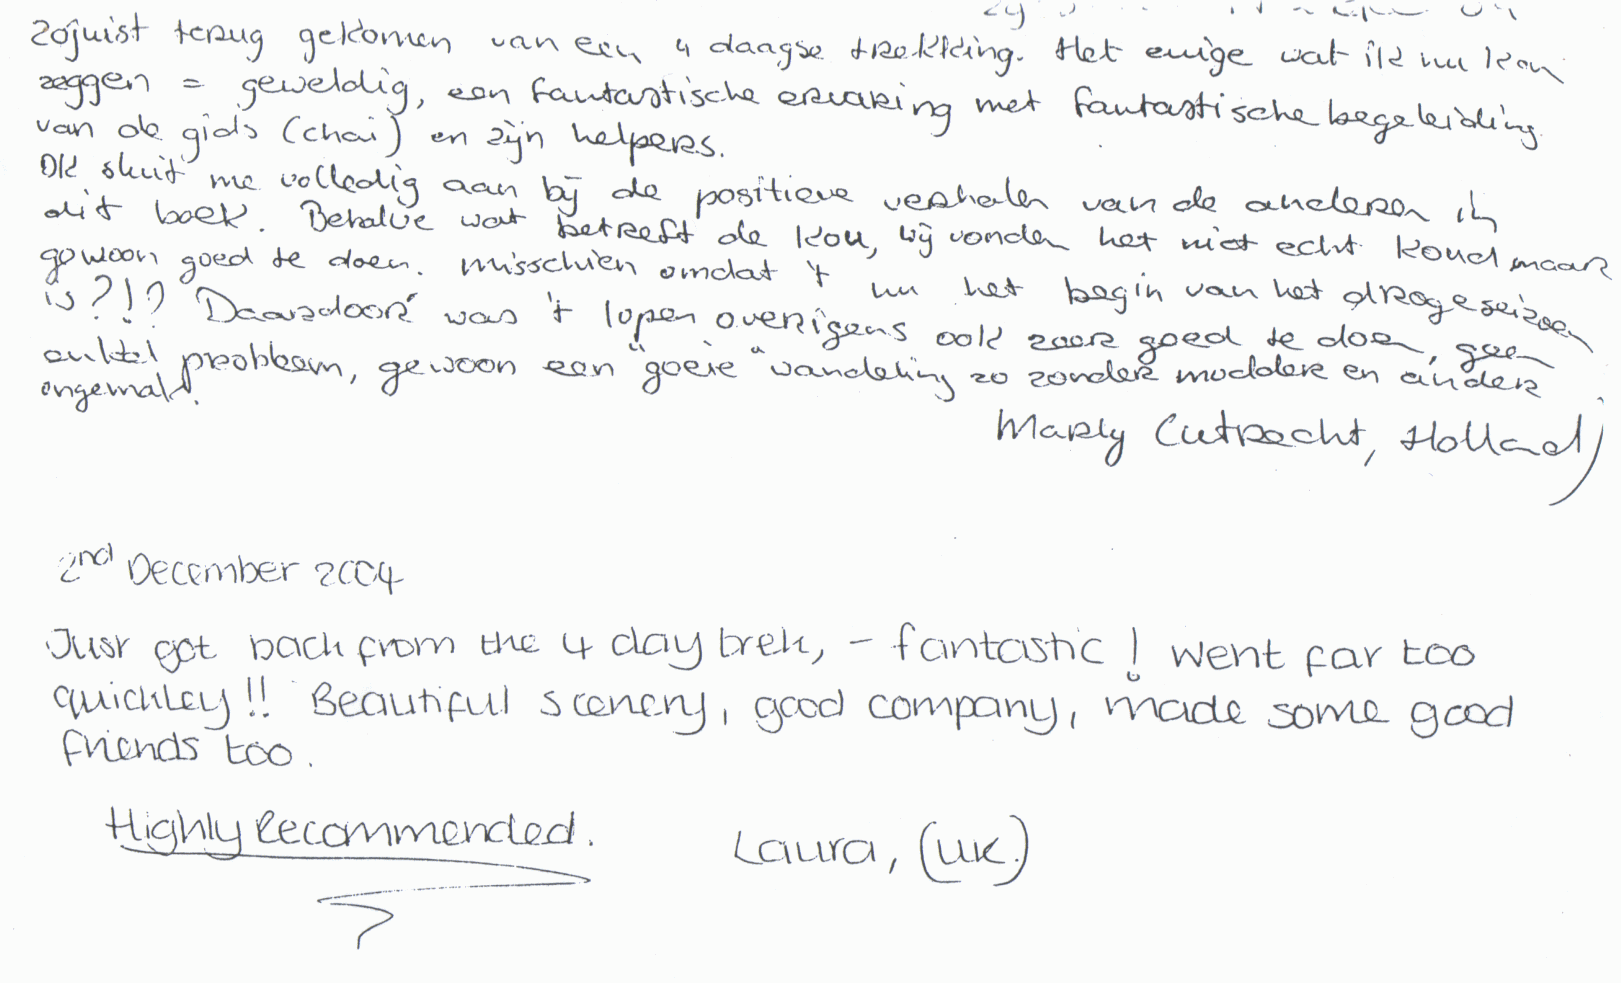 zojuist terug gekomen van een 4 daagse trekking. Het enige wat ik nu kan
zeggen = geweldig, een fantastische ervaring met fantastische begeleiding
van de gids (chai) en zijn helpers.
Ik sluit me volledig aan bij de positieve verhalen van de anderen in
dit boek. Behalve wat betreft de kou, wij vonden het niet echt koud maar
gewoon goed te doen. misschien omdat 't nu het begin van het droge seizoen
is?!? Daardoor was 't lopen overigens ook zeer goed te doen, geen
enkel probleem, gewoon een "goeie" wandeling zo zonder modder en ander
ongemak.
Marly (utrecht, Holland)
2nd December 2004
Just got back from the 4 day trek, - fantastic! Went far too
quickley!! Beautiful scenery, good company, made some good
friends too.
Highly Recommended.
Laura, (UK.)